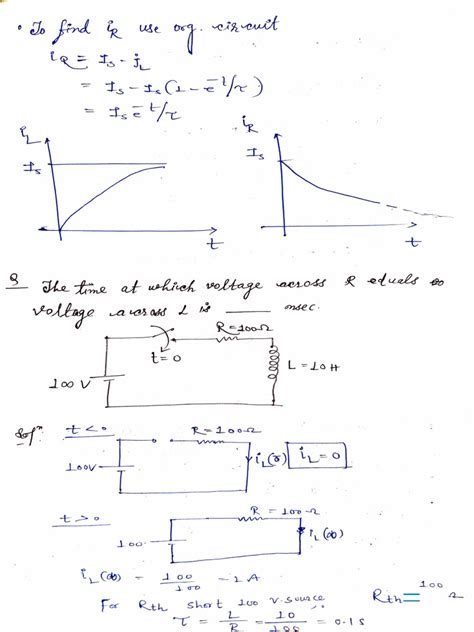 • To find iR use org. circuit
iR = Is - iL
= Is - Is(1 - e^-t/τ)
= Is e^-t/τ
iL
Is
t
iR
Is
t
Q The time at which voltage across R equals to
voltage across L is ____ msec.
R=100Ω
t=0
L=10H
100V
Solⁿ t<0
R=100Ω
100V
iL(0) iL=0
t>0
R=100Ω
100
iL(∞)
iL(∞) = 100/100 = 1A
For Rth short 100 V source Rth = 100 Ω
τ = L/R = 10/100 = 0.1s